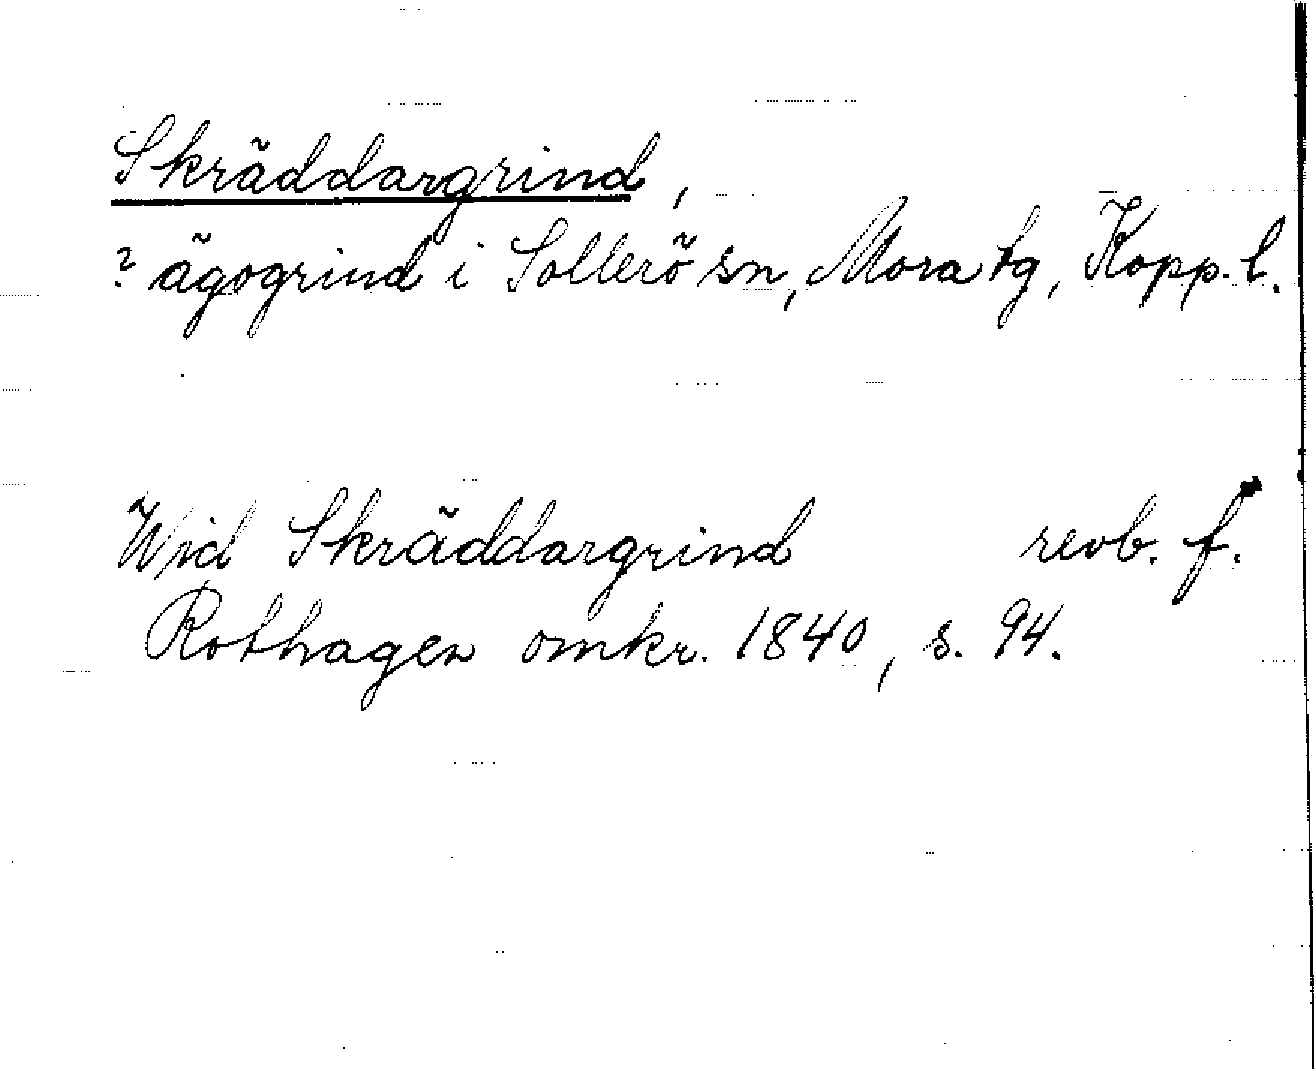 Skräddargrind,
? ägogrind i Sollerö sn, Mora tg, Kopp. l.
Wid Skräddargrind revb. f.
Rothagen omkr. 1840, s. 94.